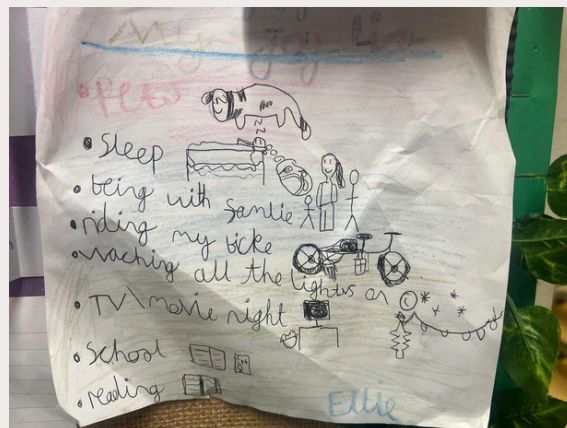 My Joy List
• Pets
• Sleep
• being with Samlie
• riding my bicke
• waching all the lightvs on
• TV\movie night
• School
• reading
Ellie